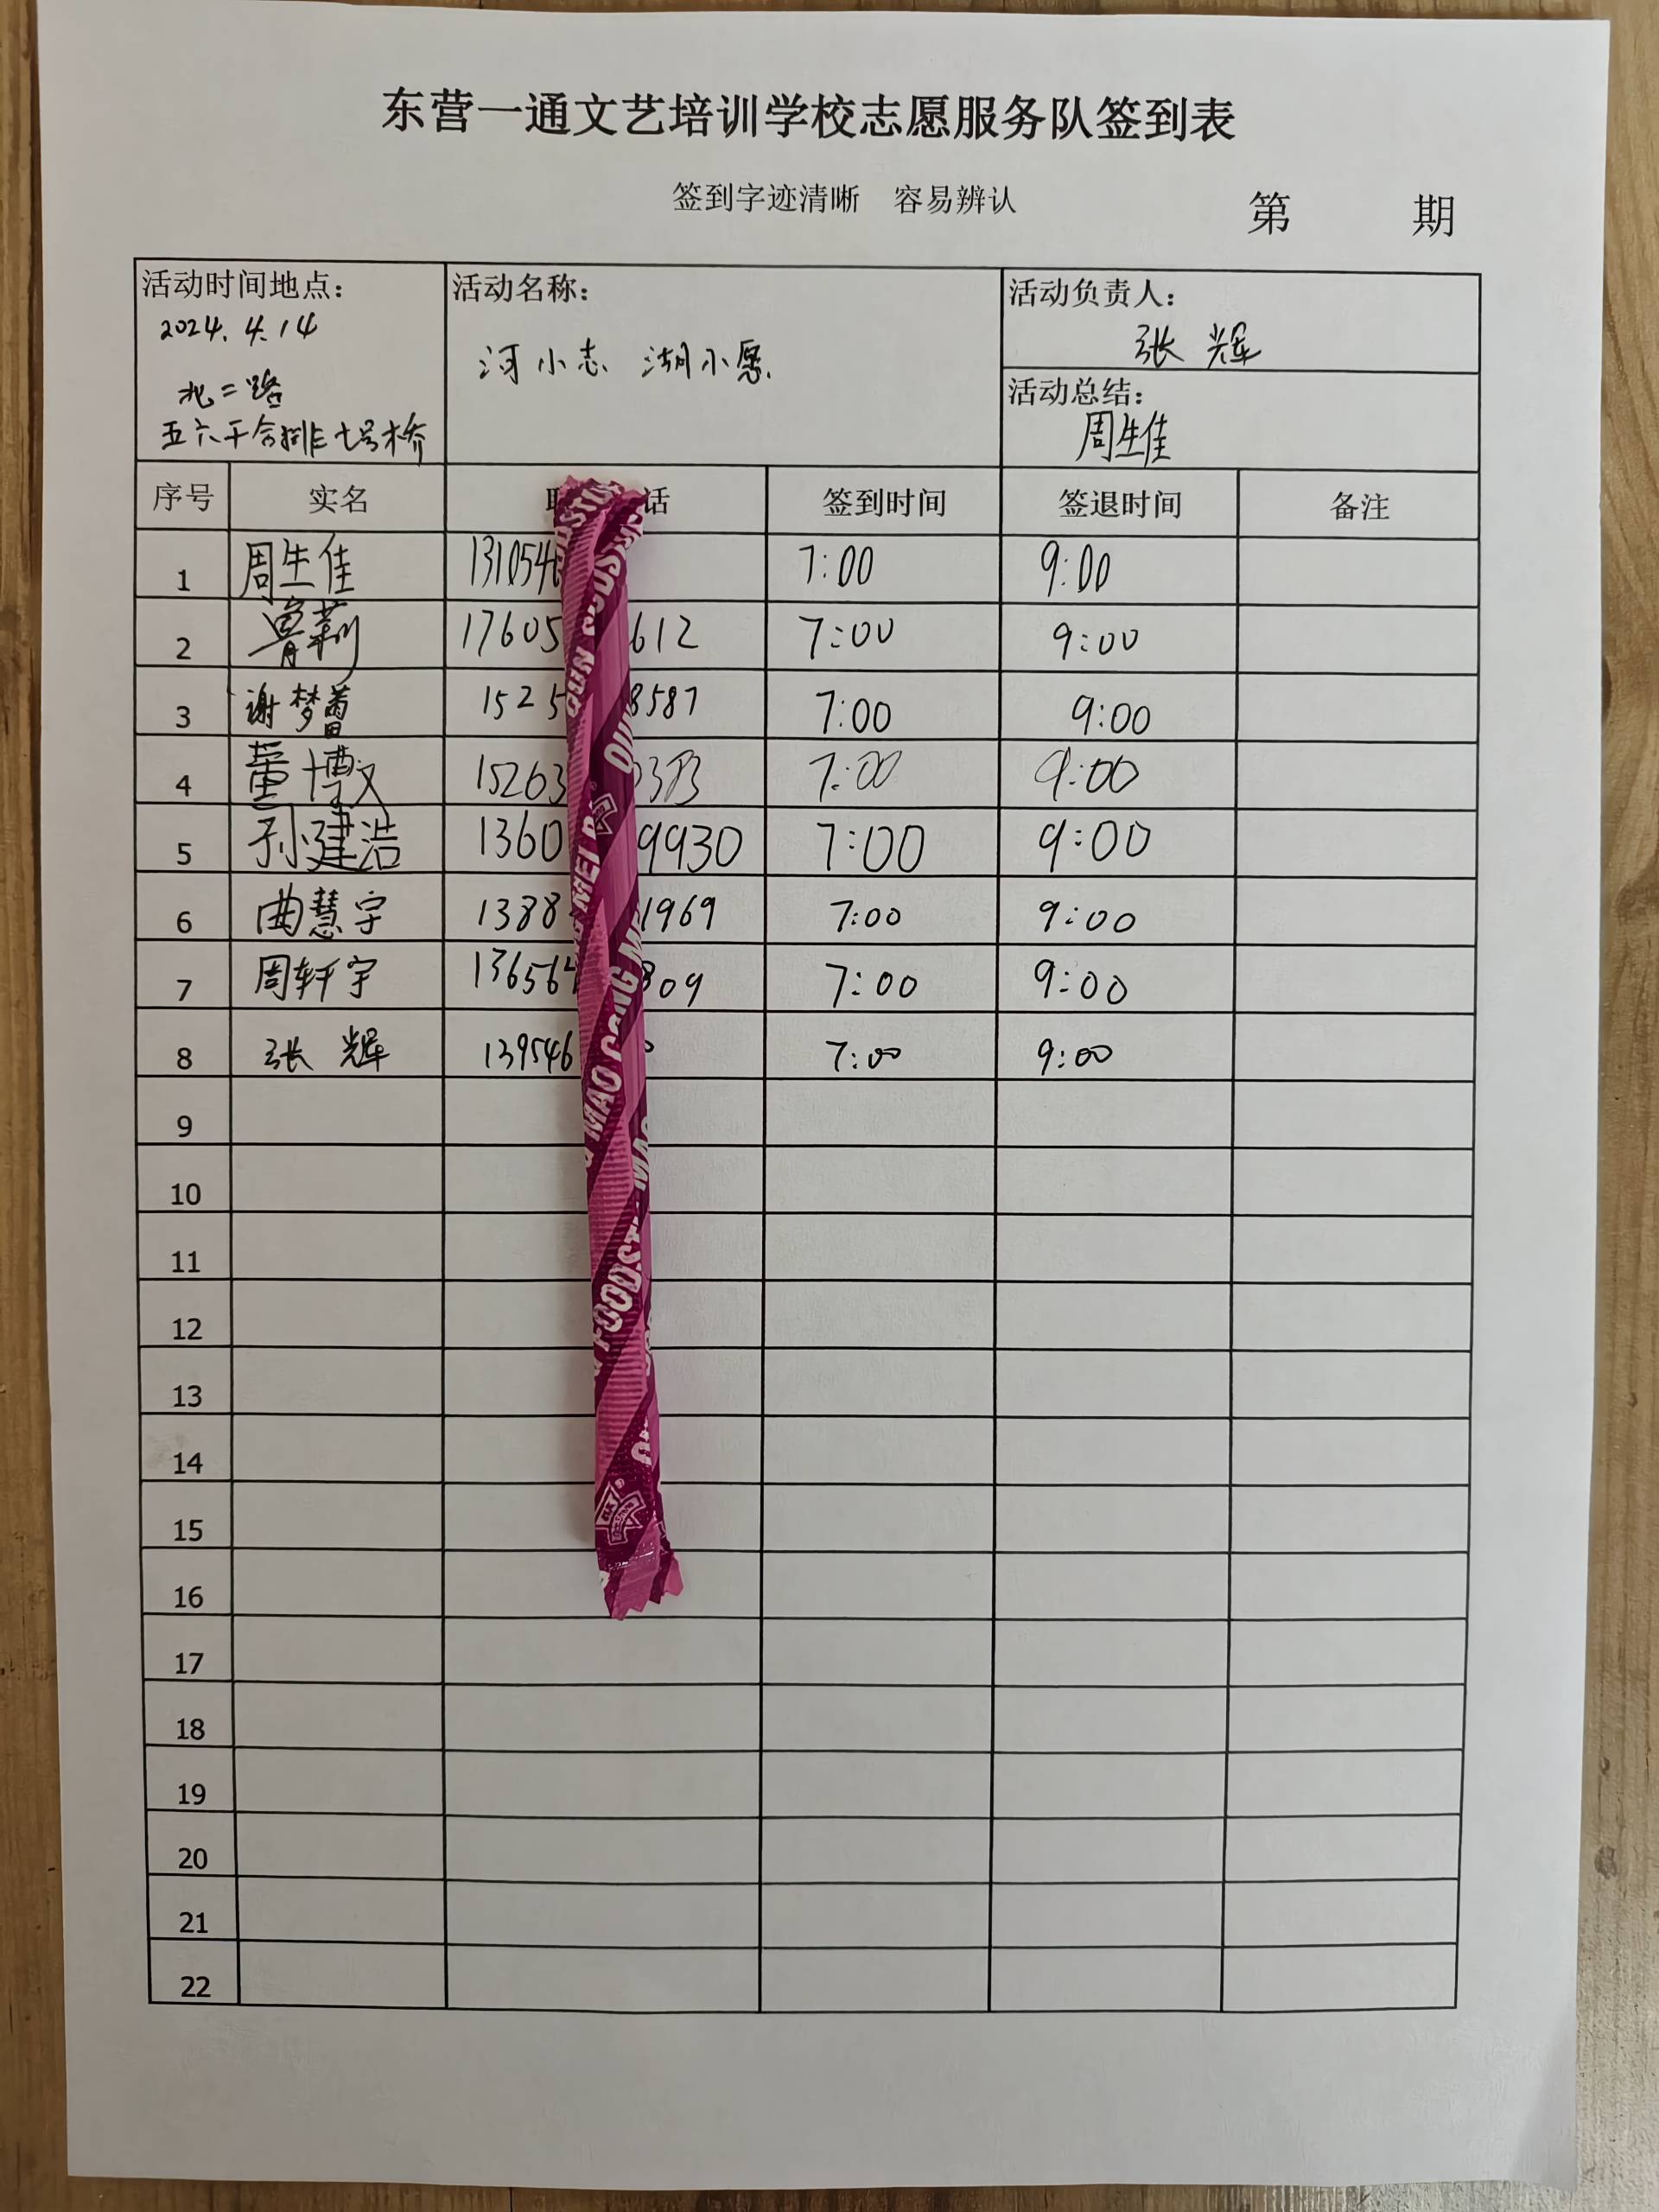 东营一通文艺培训学校志愿服务队签到表
签到字迹清晰 容易辨认
第 期
活动时间地点： 活动名称： 活动负责人：
2024.4.14
河小志 湖小愿
张辉
北二路
活动总结：
五六干合排七号木桥
周生佳
序号 实名 话 签到时间 签退时间 备注
1 周生佳 131054 7:00 9:00
2 鲁莉 17605 612 7:00 9:00
3 谢梦蕾 1525 8587 7:00 9:00
4 董博文 15263 0393 7:00 9:00
5 孙建浩 1360 9930 7:00 9:00
6 曲慧宇 1388 1969 7:00 9:00
7 周轩宇 13656 809 7:00 9:00
8 张辉 139546 7:00 9:00
9
10
11
12
13
14
15
16
17
18
19
20
21
22